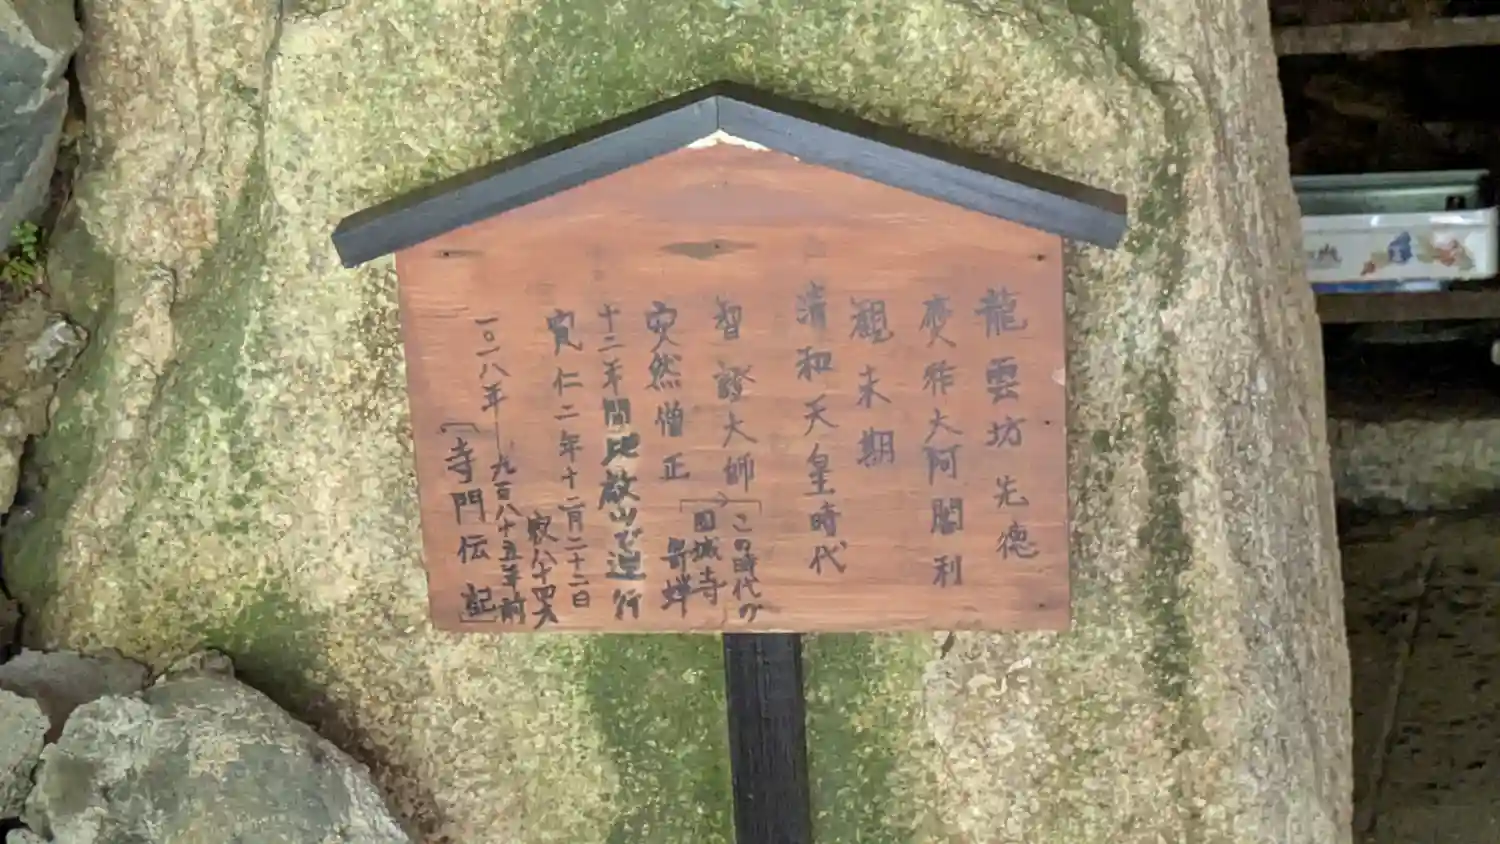 龍雲坊先徳
慶祚大阿闍利
観末期
清和天皇時代
智證大師
この時代が
園城寺
穴然僧正
十二年間比叡山で逆行
寛仁二年十二月二十二日
寂八十四才
一〇一八年―九百八十五年前
寺門伝記